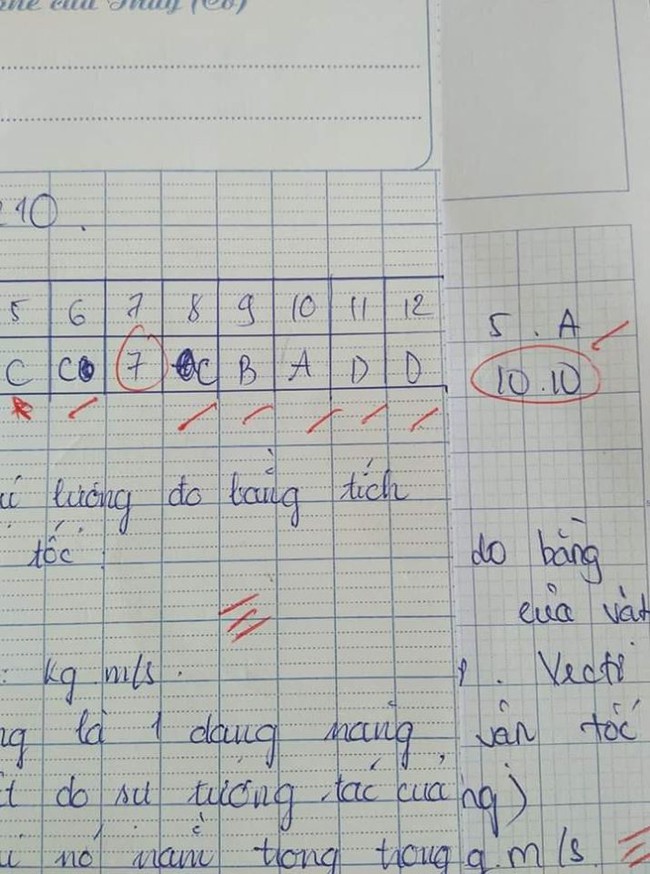 của Thầy (Cô)
10.
5 6 7 8 9 10 11 12
C C 7 C B A D D
5. A
10.10
lượng đo bằng tích
tốc
do bằng
của vật
: kg m/s.
. Vectơ
là 1 dạng năng
vận tốc
do sự tương tác của
ng)
nó nằm trong
g.m/s